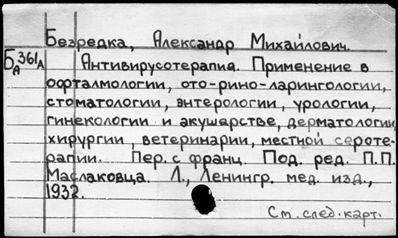 Безредка, Александр Михайлович.
Б/А 361А
Антивирусотерапия. Применение в
оофталмологии, ото-рино-ларингологии,
стоматологии, энтерологии, урологии,
гинекологии и акушерстве, дерматологии,
хирургии, ветеринарии, местной сероте-
рапии. Пер. с франц. Под. ред. П.П.
Маслаковца. Л., Ленингр. мед. изд.,
1932.
См. след. карт.